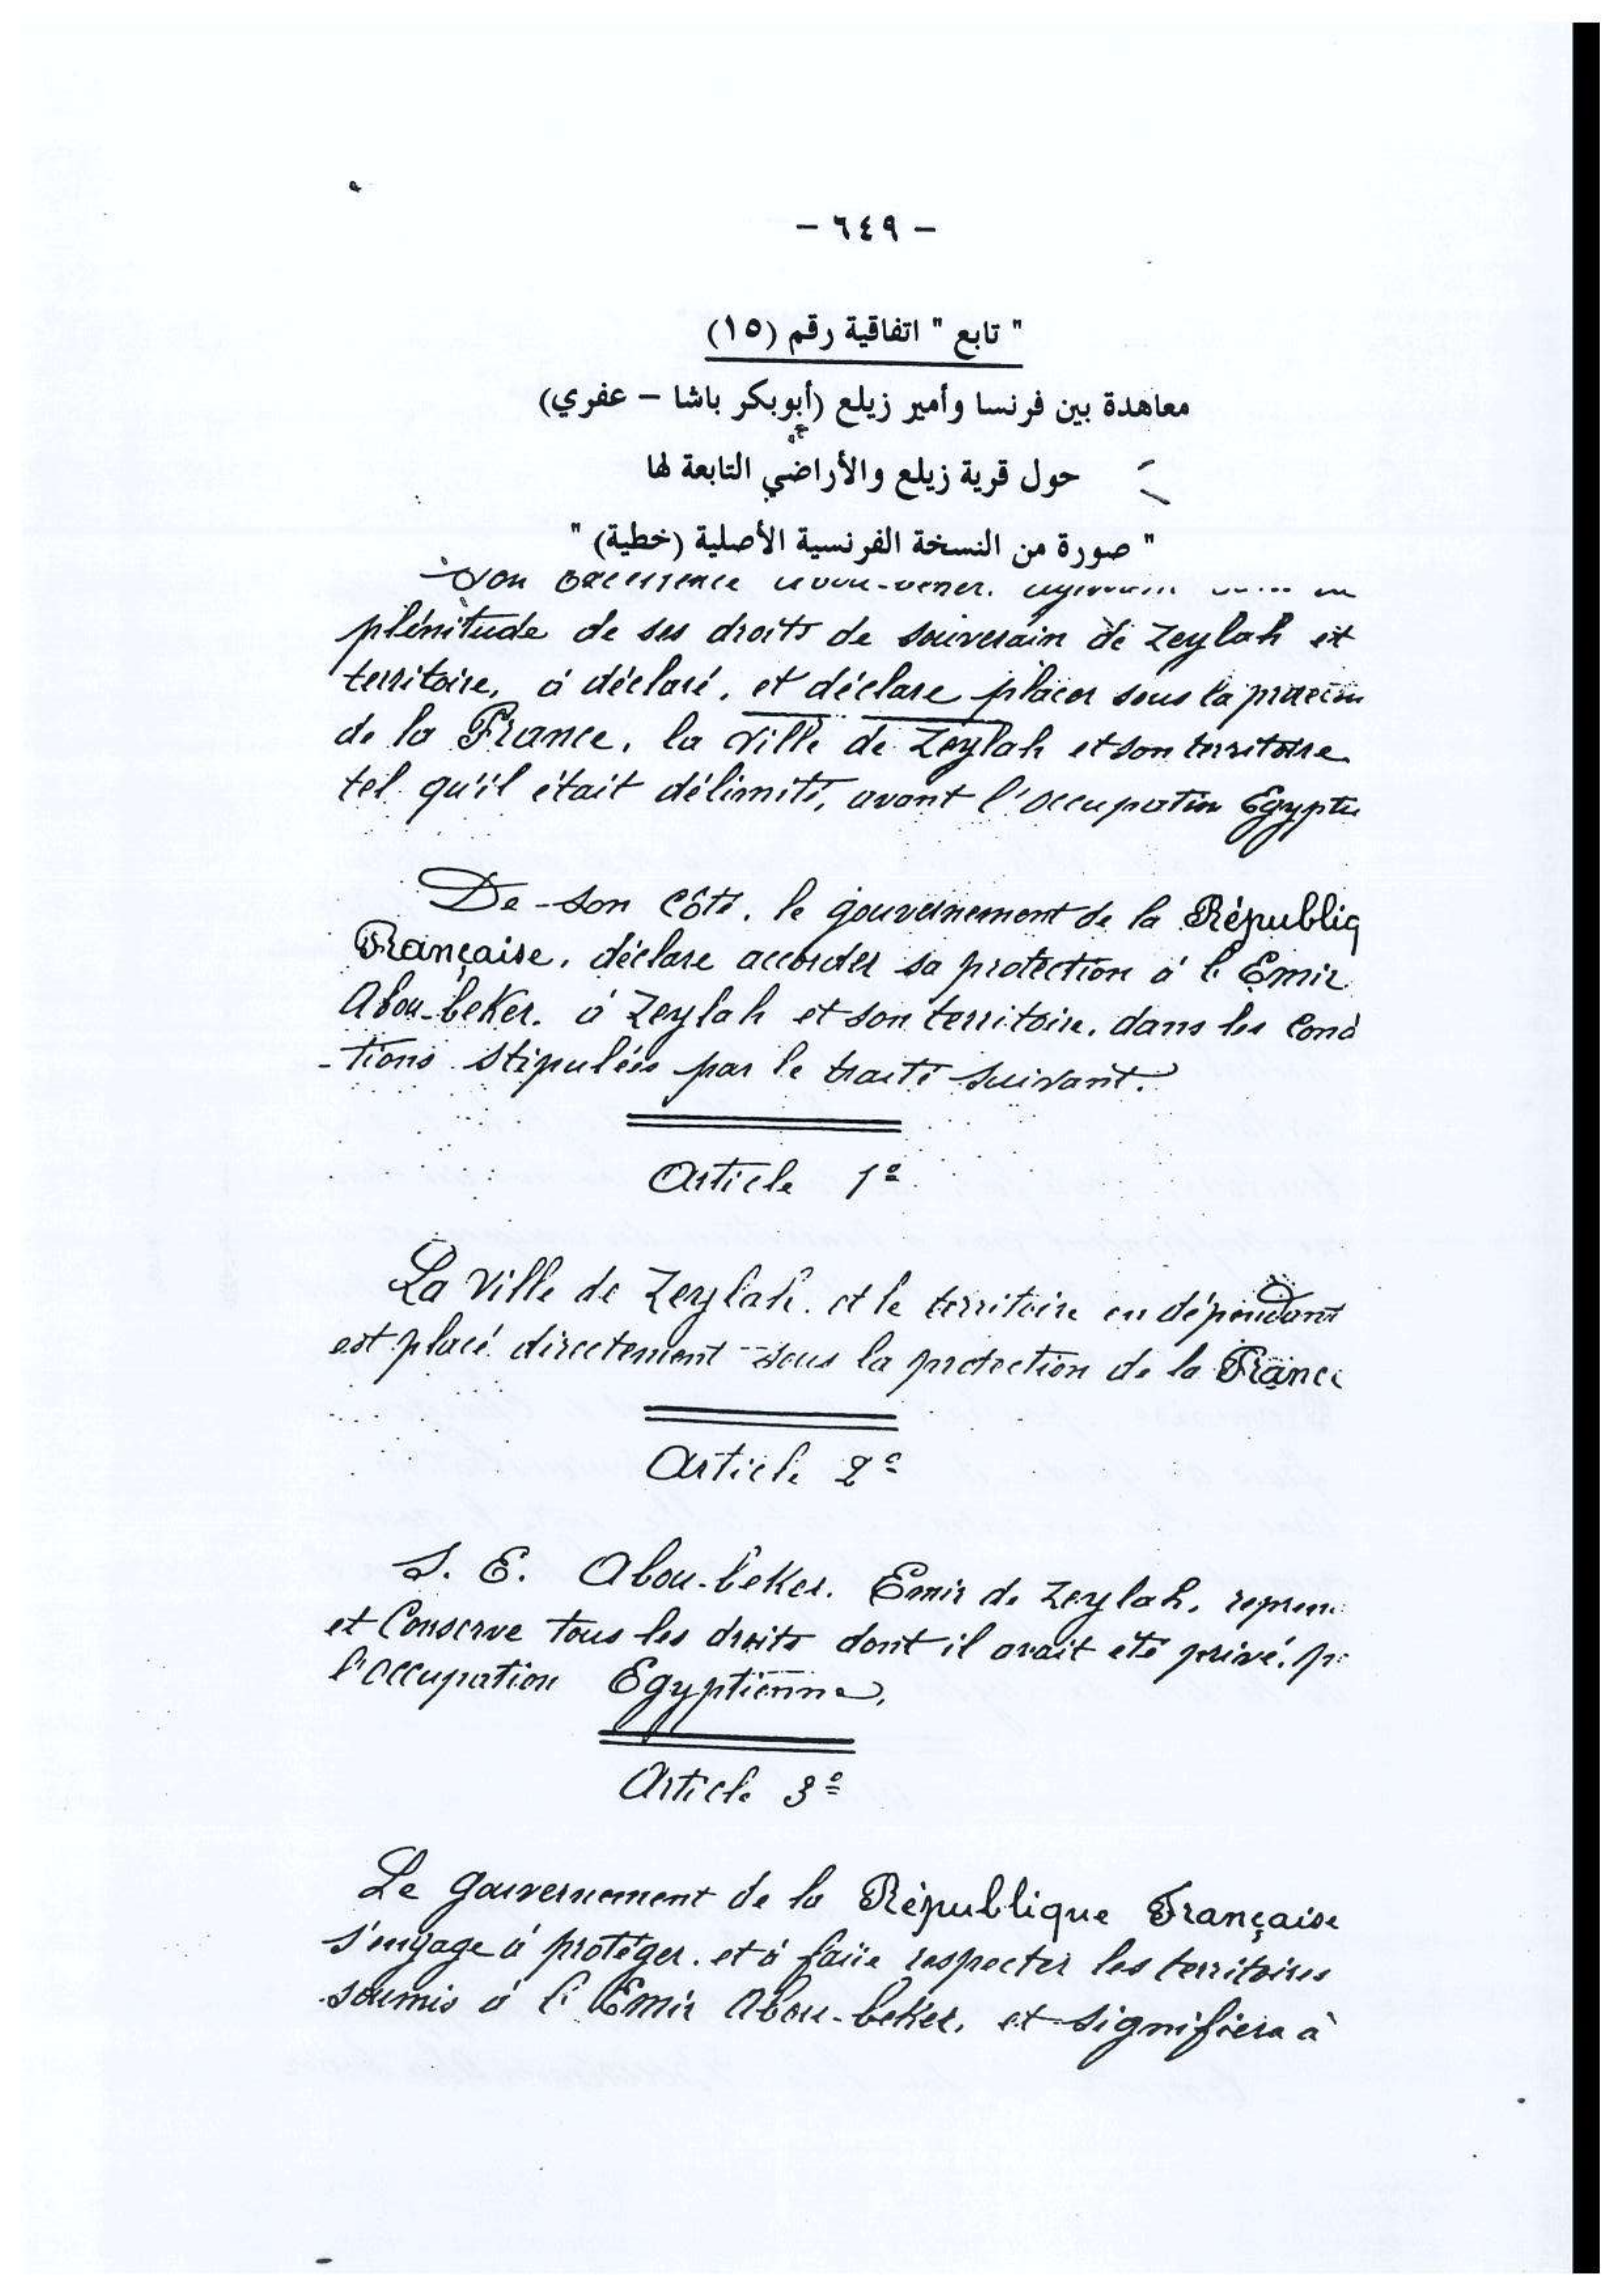 – ٦٤٩ –
" تابع " اتفاقية رقم (١٥)
معاهدة بين فرنسا وأمير زيلع (أبوبكر باشا – عفري)
حول قرية زيلع والأراضي التابعة لها
" صورة من النسخة الفرنسية الأصلية (خطية) "
Son Excellence
plénitude de ses droits de souverain de Zeylah et
territoire, à déclaré, et déclare placer sous la
de la France, la ville de Zeylah et son territoire
tel qu'il était délimité, avant l'occupation Egyptie
De son côté, le gouvernement de la Républiq
Française, déclare accorder sa protection à l'Emir
Abou-beker, à Zeylah et son territoire, dans les Condi
-tions stipulées par le traité suivant.
Article 1e
La Ville de Zeylah, et le territoire en dépendant
est placé directement sous la protection de la France
Article 2e
S. E. Abou-beker, Emir de Zeylah, repren
et Conserve tous les droits dont il avait été privé, p
l'occupation Egyptienne,
Article 3e
Le gouvernement de la République Française
s'engage à protéger, et à faire respecter les territoires
soumis à l'Emir Abou-beker, et signifiera à